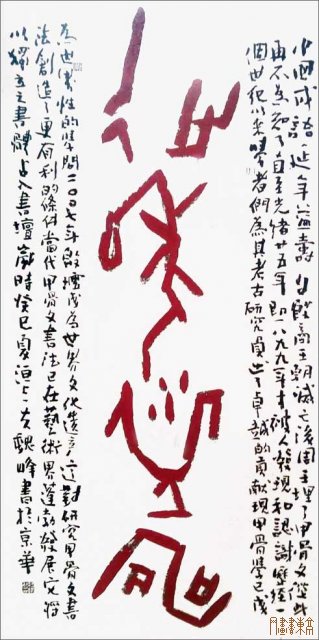 延年益壽
成語 延年益壽 自殷商王朝滅亡之後周主埋了甲骨文從此
再不為知了直至光緒廿五年即一八九九年才被人發現和認識歷經一
個世紀以來學者們為其考古研究出了卓越的貢獻現甲骨學已成
為世界性的學問二〇〇七年殷墟成為世界文化遺產這對研究甲骨文書
法創造了更有利的條件當代甲骨文書法已在藝術界蓬勃發展它將
以獨立之書體占入書壇 時癸巳夏洹上 魏峰書於京華